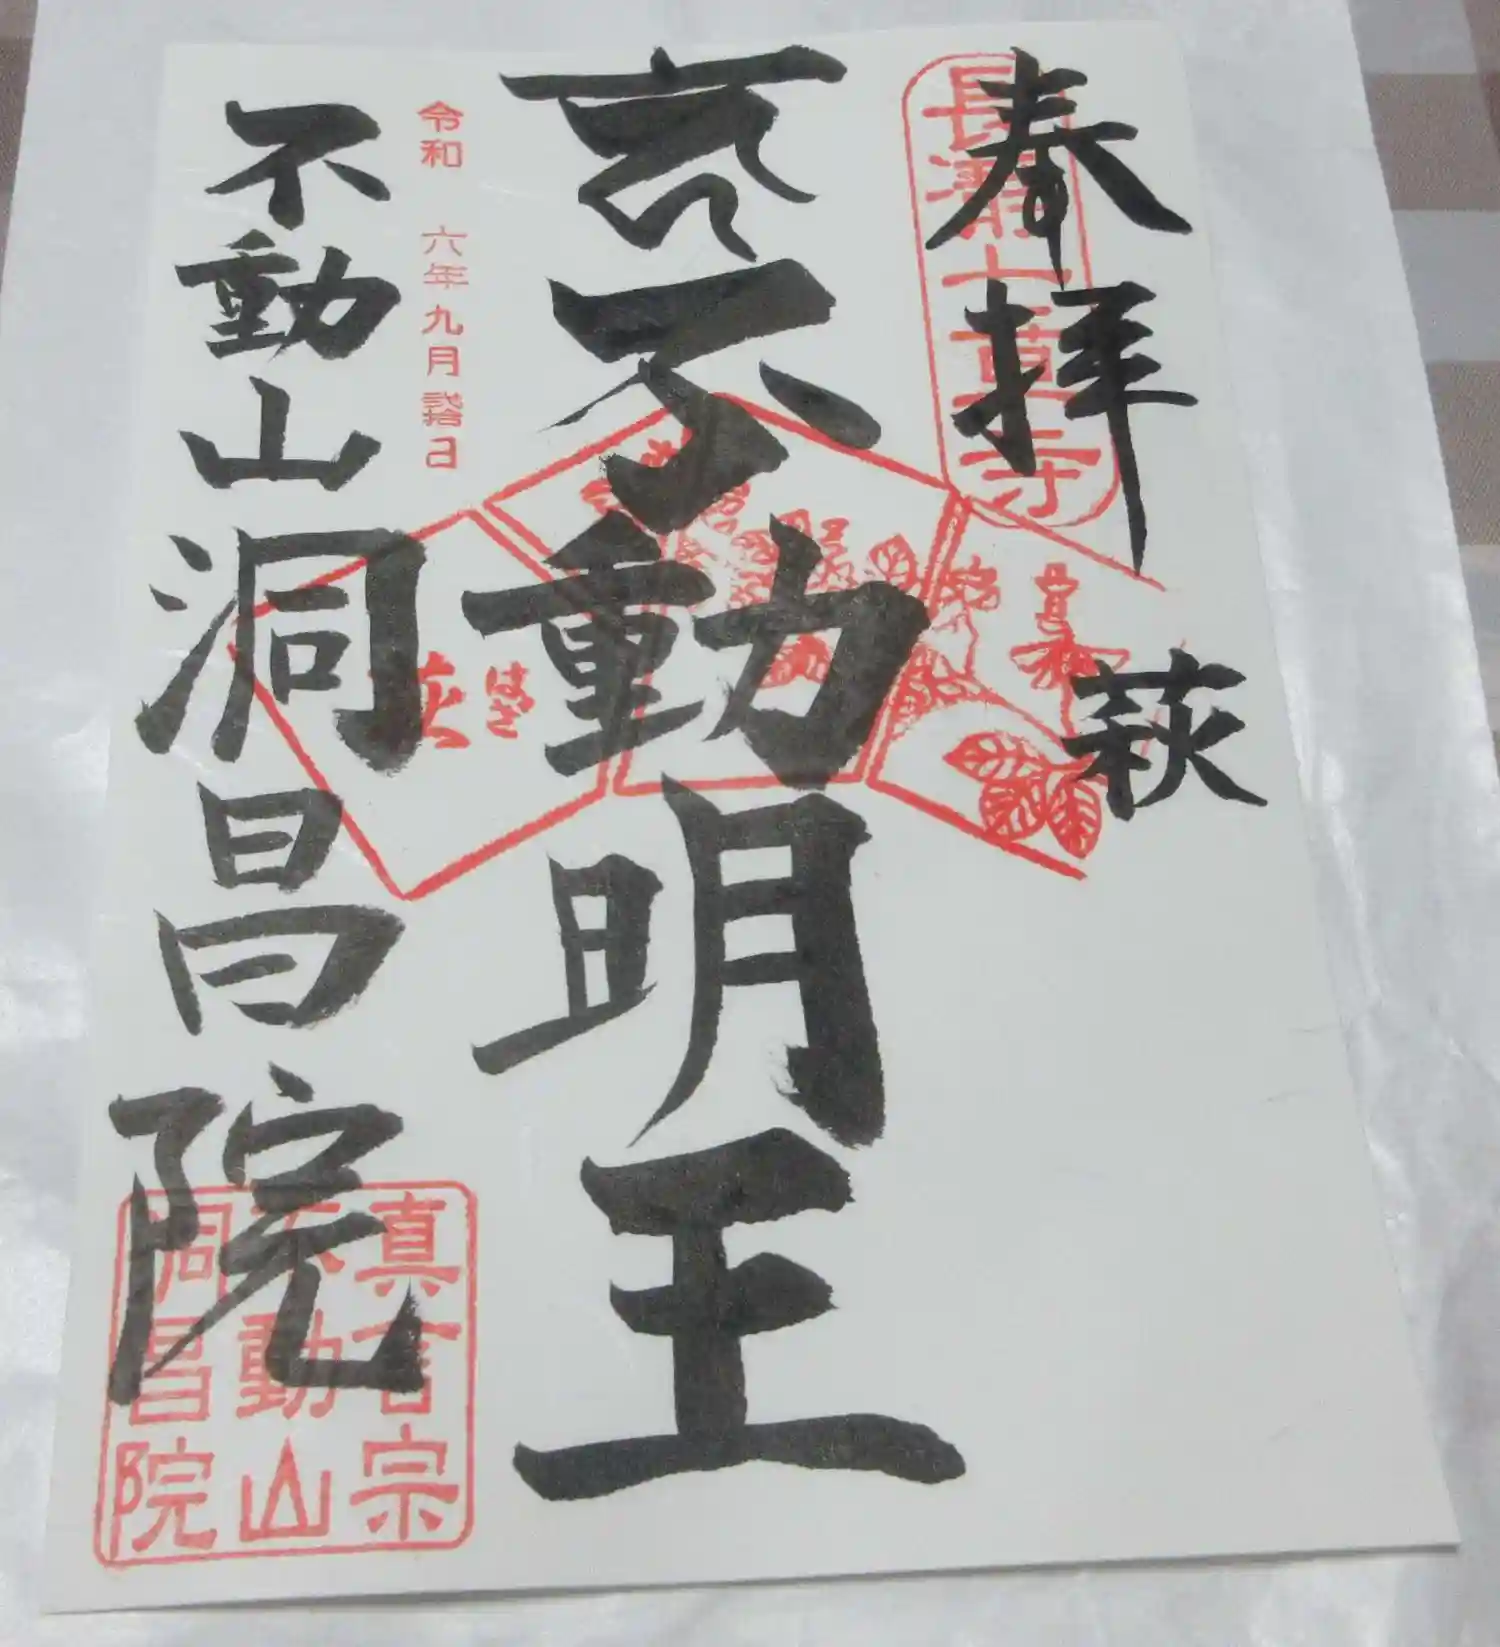 奉拝
萩
長瀞七草寺
不動明王
はぎ
萩
令和 六年九月弐拾日
不動山洞昌院
真言宗
不動山
洞昌院